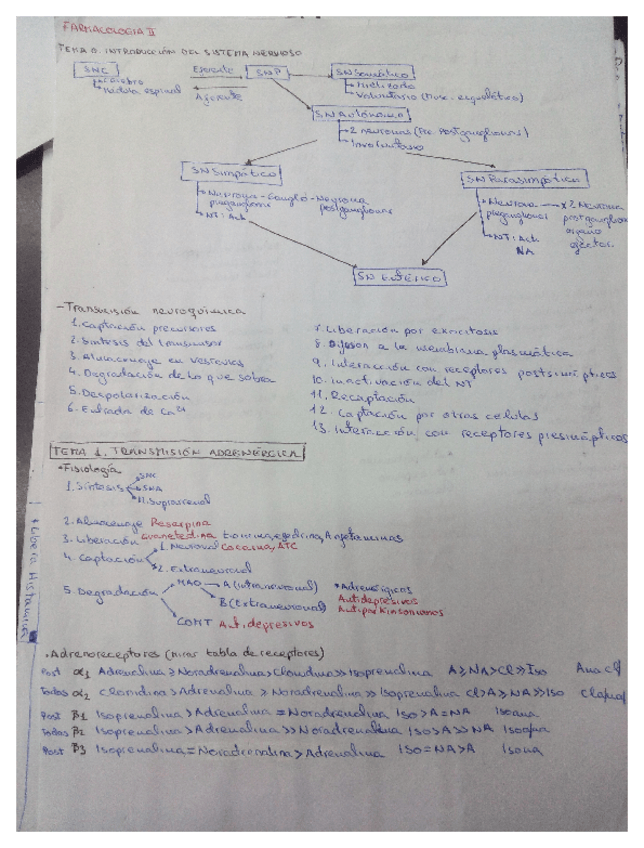 FARMACOLOGIA II
TEMA 0. INTRODUCCIÓN DEL SISTEMA NERVIOSO
SNC Eferente SNP SNSomático
Cerebro Mielizado
Médula espinal Aferente Voluntario (Musc. esquelético)
SNAutónomo
2 neuronas (Pre. Postganglionares)
Involuntario
SNSimpático SN Parasimpático
Neurona - Ganglio - Neurona Neurona x2 Neurona
preganglionar postganglionar preganglionar postganglionar
NT: Ach órgano
NT: Ach efector.
NA
SN Entérico
- Transmisión neuroquímica
1. Captación precursores
2. Síntesis del transmisor
3. Almacenaje en vesículas
4. Degradación de lo que sobra
5. Despolarización
6. Entrada de Ca2+
7. Liberación por exocitosis
8. Difusion a la membrana plasmática
9. Interacción con receptores postsinápticos
10. Inactivación del NT
11. Recaptación
12. Captación por otras celulas
13. Interacción con receptores presinápticos
TEMA 1. TRANSMISIÓN ADRENÉRGICA
• Fisiología
SNC
1. Síntesis SNA
M. Suprarrenal
2. Almacenaje Reserpina
3. Liberación Guanetedina tiramina, efedrina, Anfetaminas
1. Neuronal Cocaina, ATC
4. Captación
2. Extraneuronal
MAO A (intraneuronal) • Adrenérgicos
5. Degradación B (Extraneuronal) Antidepresivos
Antiparkinsonianos
COMT Antidepresivos
* Libera Histamina
• Adrenoreceptores (mirar tabla de receptores)
Post α1 Adrenalina ≥ Noradrenalina > Clonidina >> Isoprenalina A ≥ NA > Cl >> Iso Anacli
Todos α2 Clonidina > Adrenalina ≥ Noradrenalina >> Isoprenalina Cl > A ≥ NA >> Iso
Post β1 Isoprenalina > Adrenalina = Noradrenalina Iso > A = NA Isoana
Todos β2 Isoprenalina > Adrenalina >> Noradrenalina Iso > A >> NA
Post β3 Isoprenalina = Noradrenalina > Adrenalina Iso = NA > A Isona